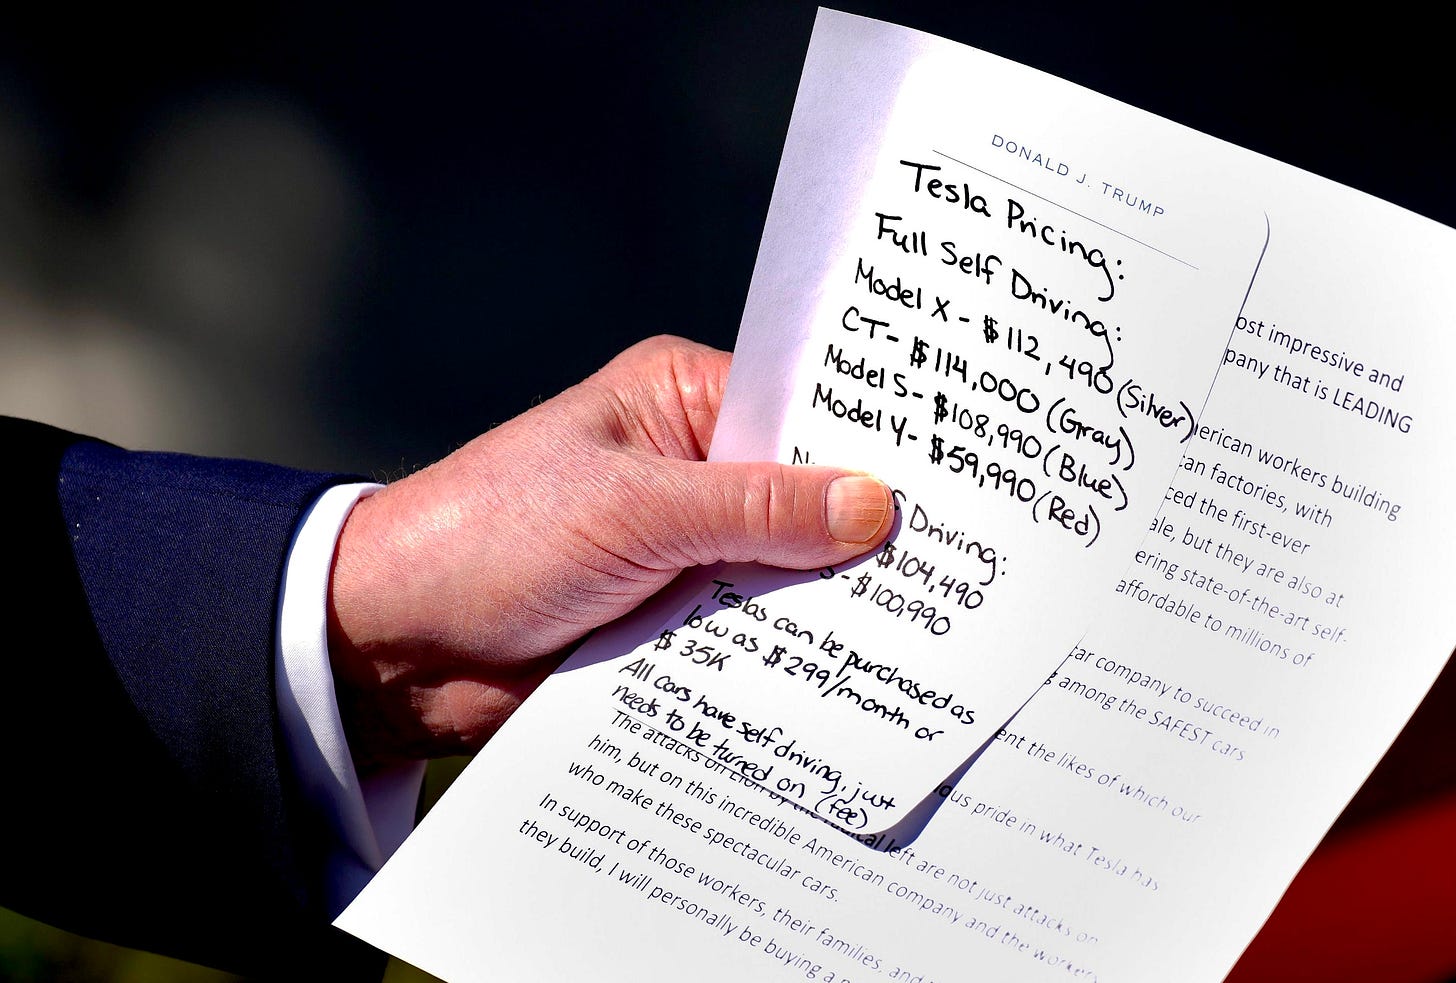 DONALD J. TRUMP
Tesla Pricing:
Full Self Driving:
Model X - $112,490 (Silver)
CT - $114,000 (Gray)
Model S - $108,990 (Blue)
Model Y - $59,990 (Red)
Driving:
$104,490
S - $100,990
Teslas can be purchased as
low as $299/month or
$35K
All cars have self driving, just
needs to be turned on (fee)
impressive and
that is LEADING
workers building
factories, with
the first-ever
but they are also at
state-of-the-art self-
affordable to millions of
car company to succeed in
among the SAFEST cars
the likes of which our
pride in what Tesla has
The attacks on Elon by the radical left are not just attacks on
him, but on this incredible American company and the workers
who make these spectacular cars.
In support of those workers, their families, and
they build, I will personally be buying a